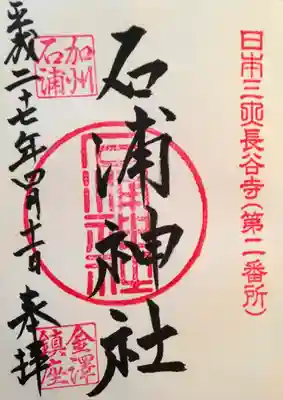 日本三大長谷寺(第二番所)
加州
石浦
石浦神社
石浦神社
金澤
鎮座
平成二十七年四月十二日 奉拝